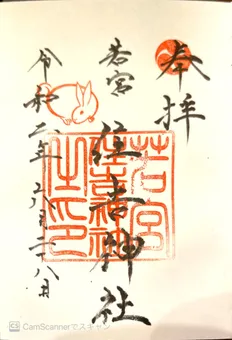 奉拝
若宮
住吉神社
令和二年 六月二十八日
若宮
住吉神社
之印
CS CamScannerでスキャン